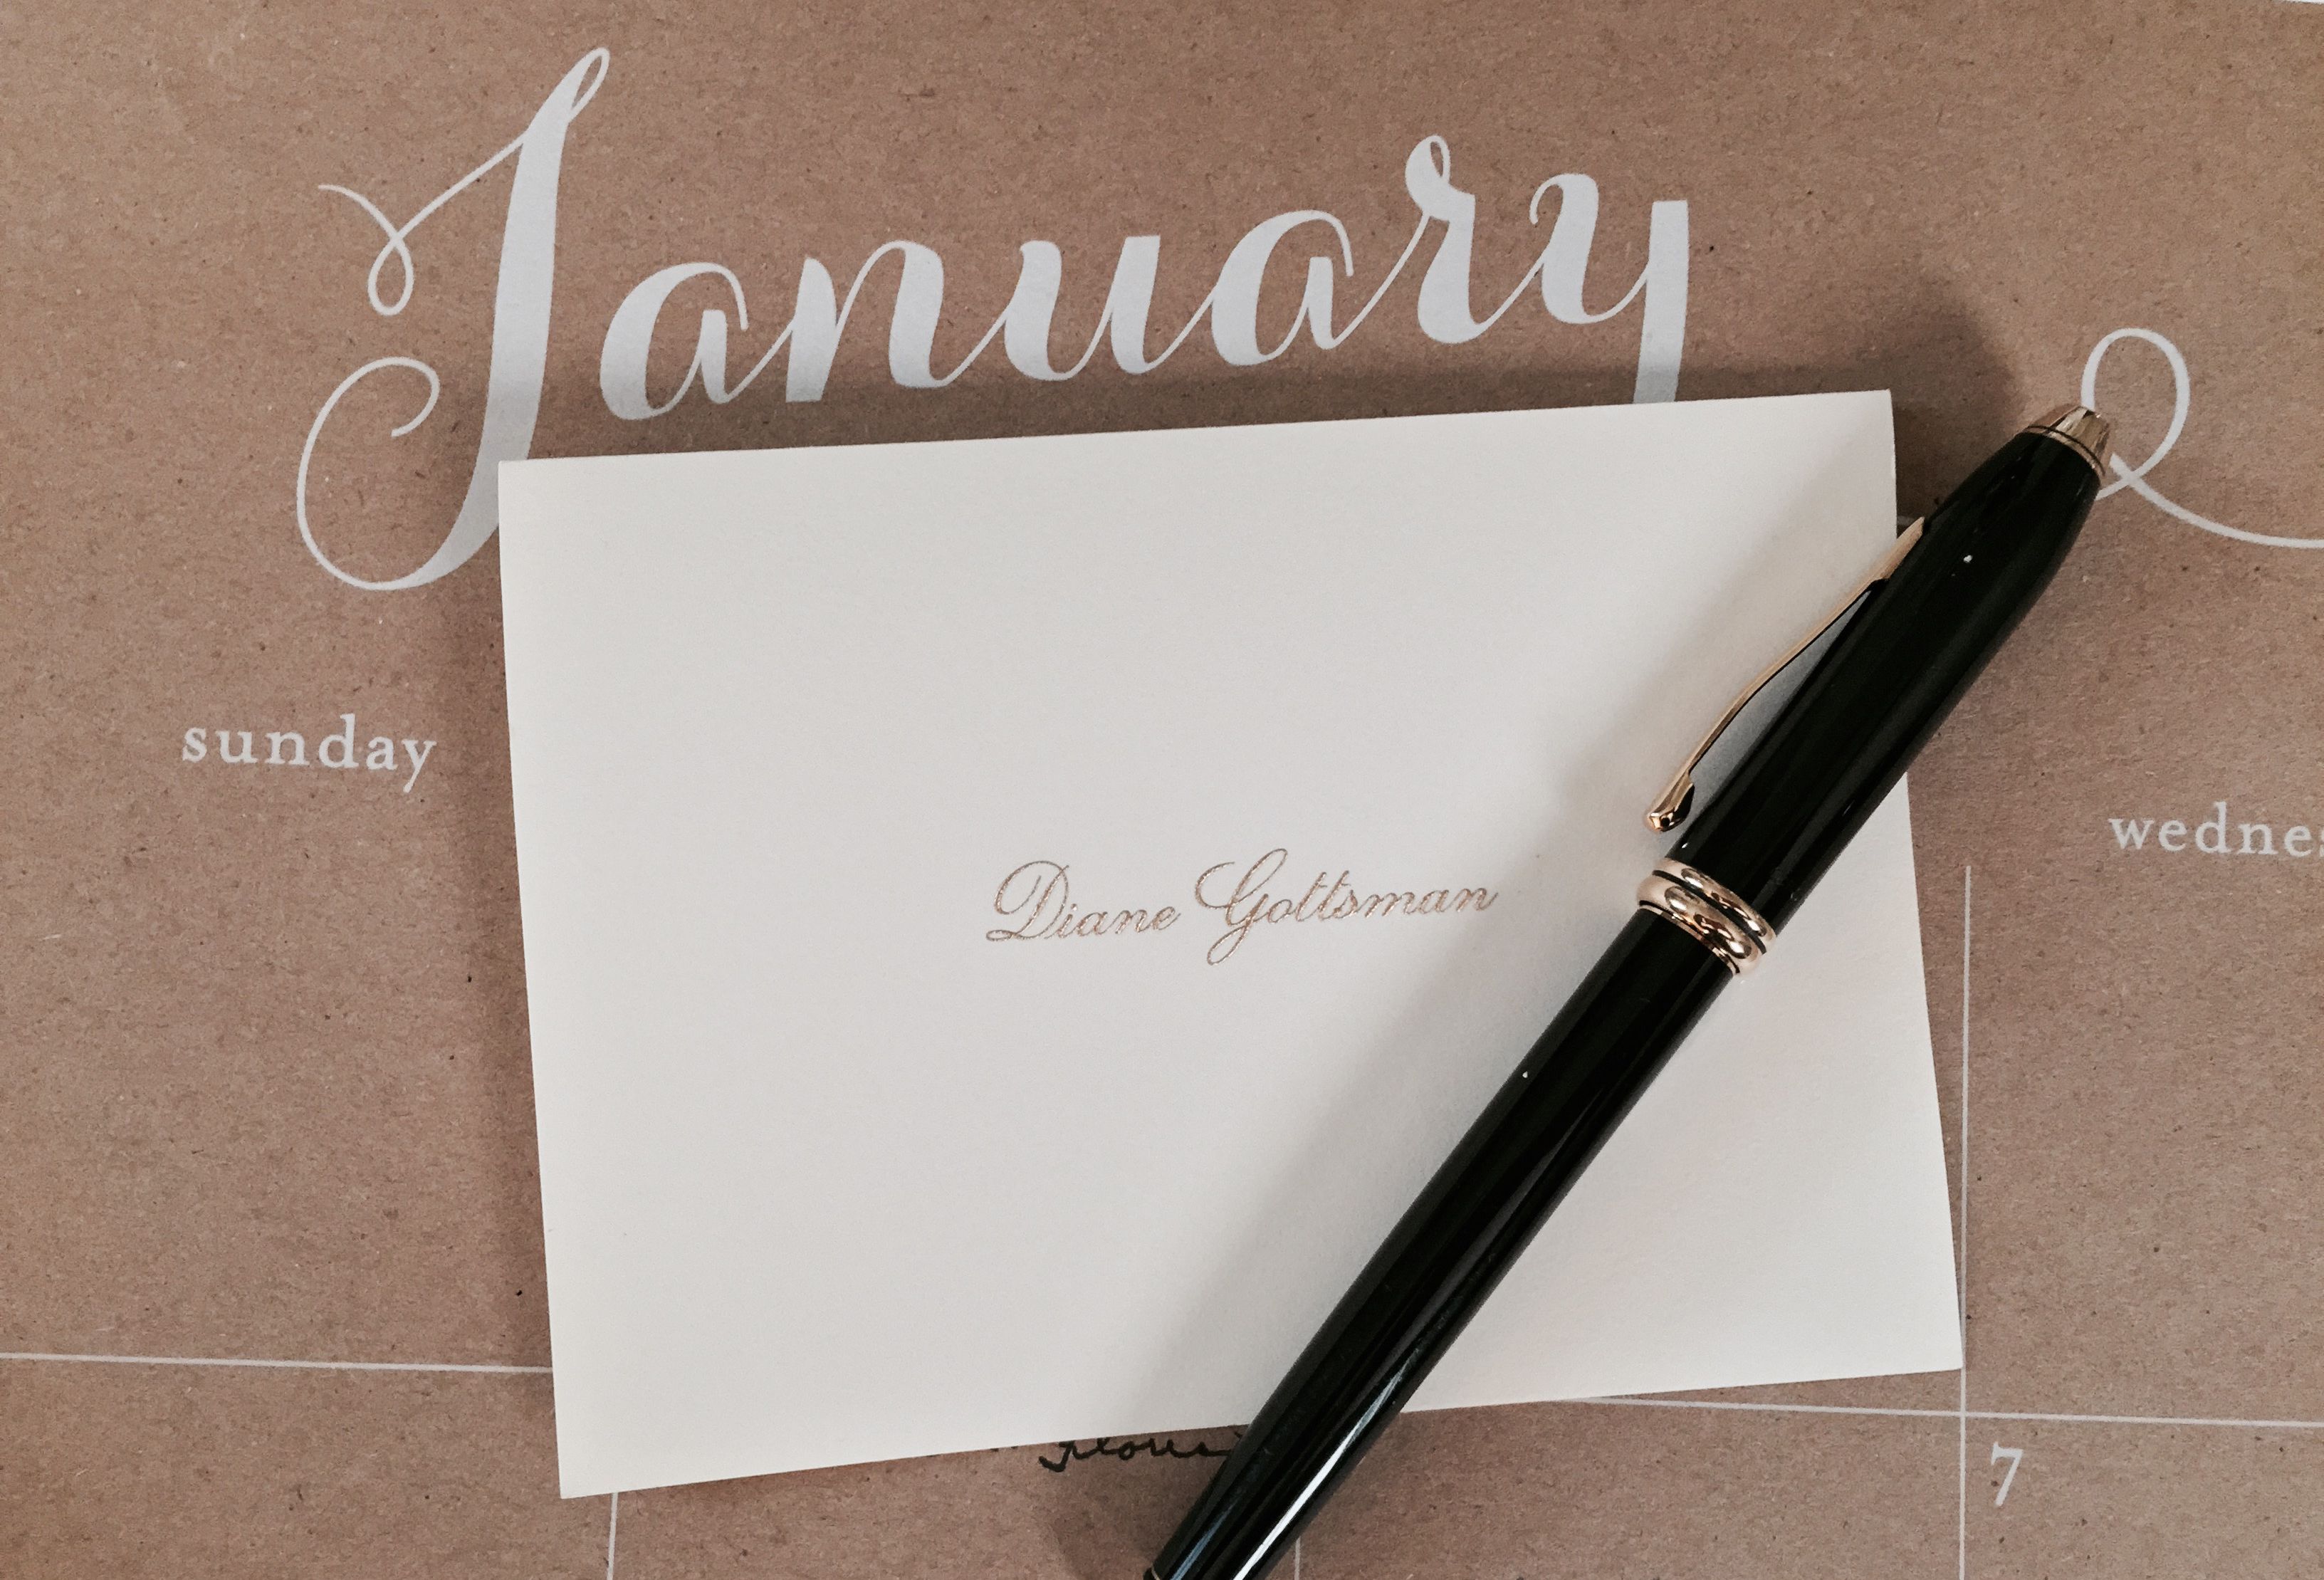 January
sunday
wednes
Diane Gottsman
7